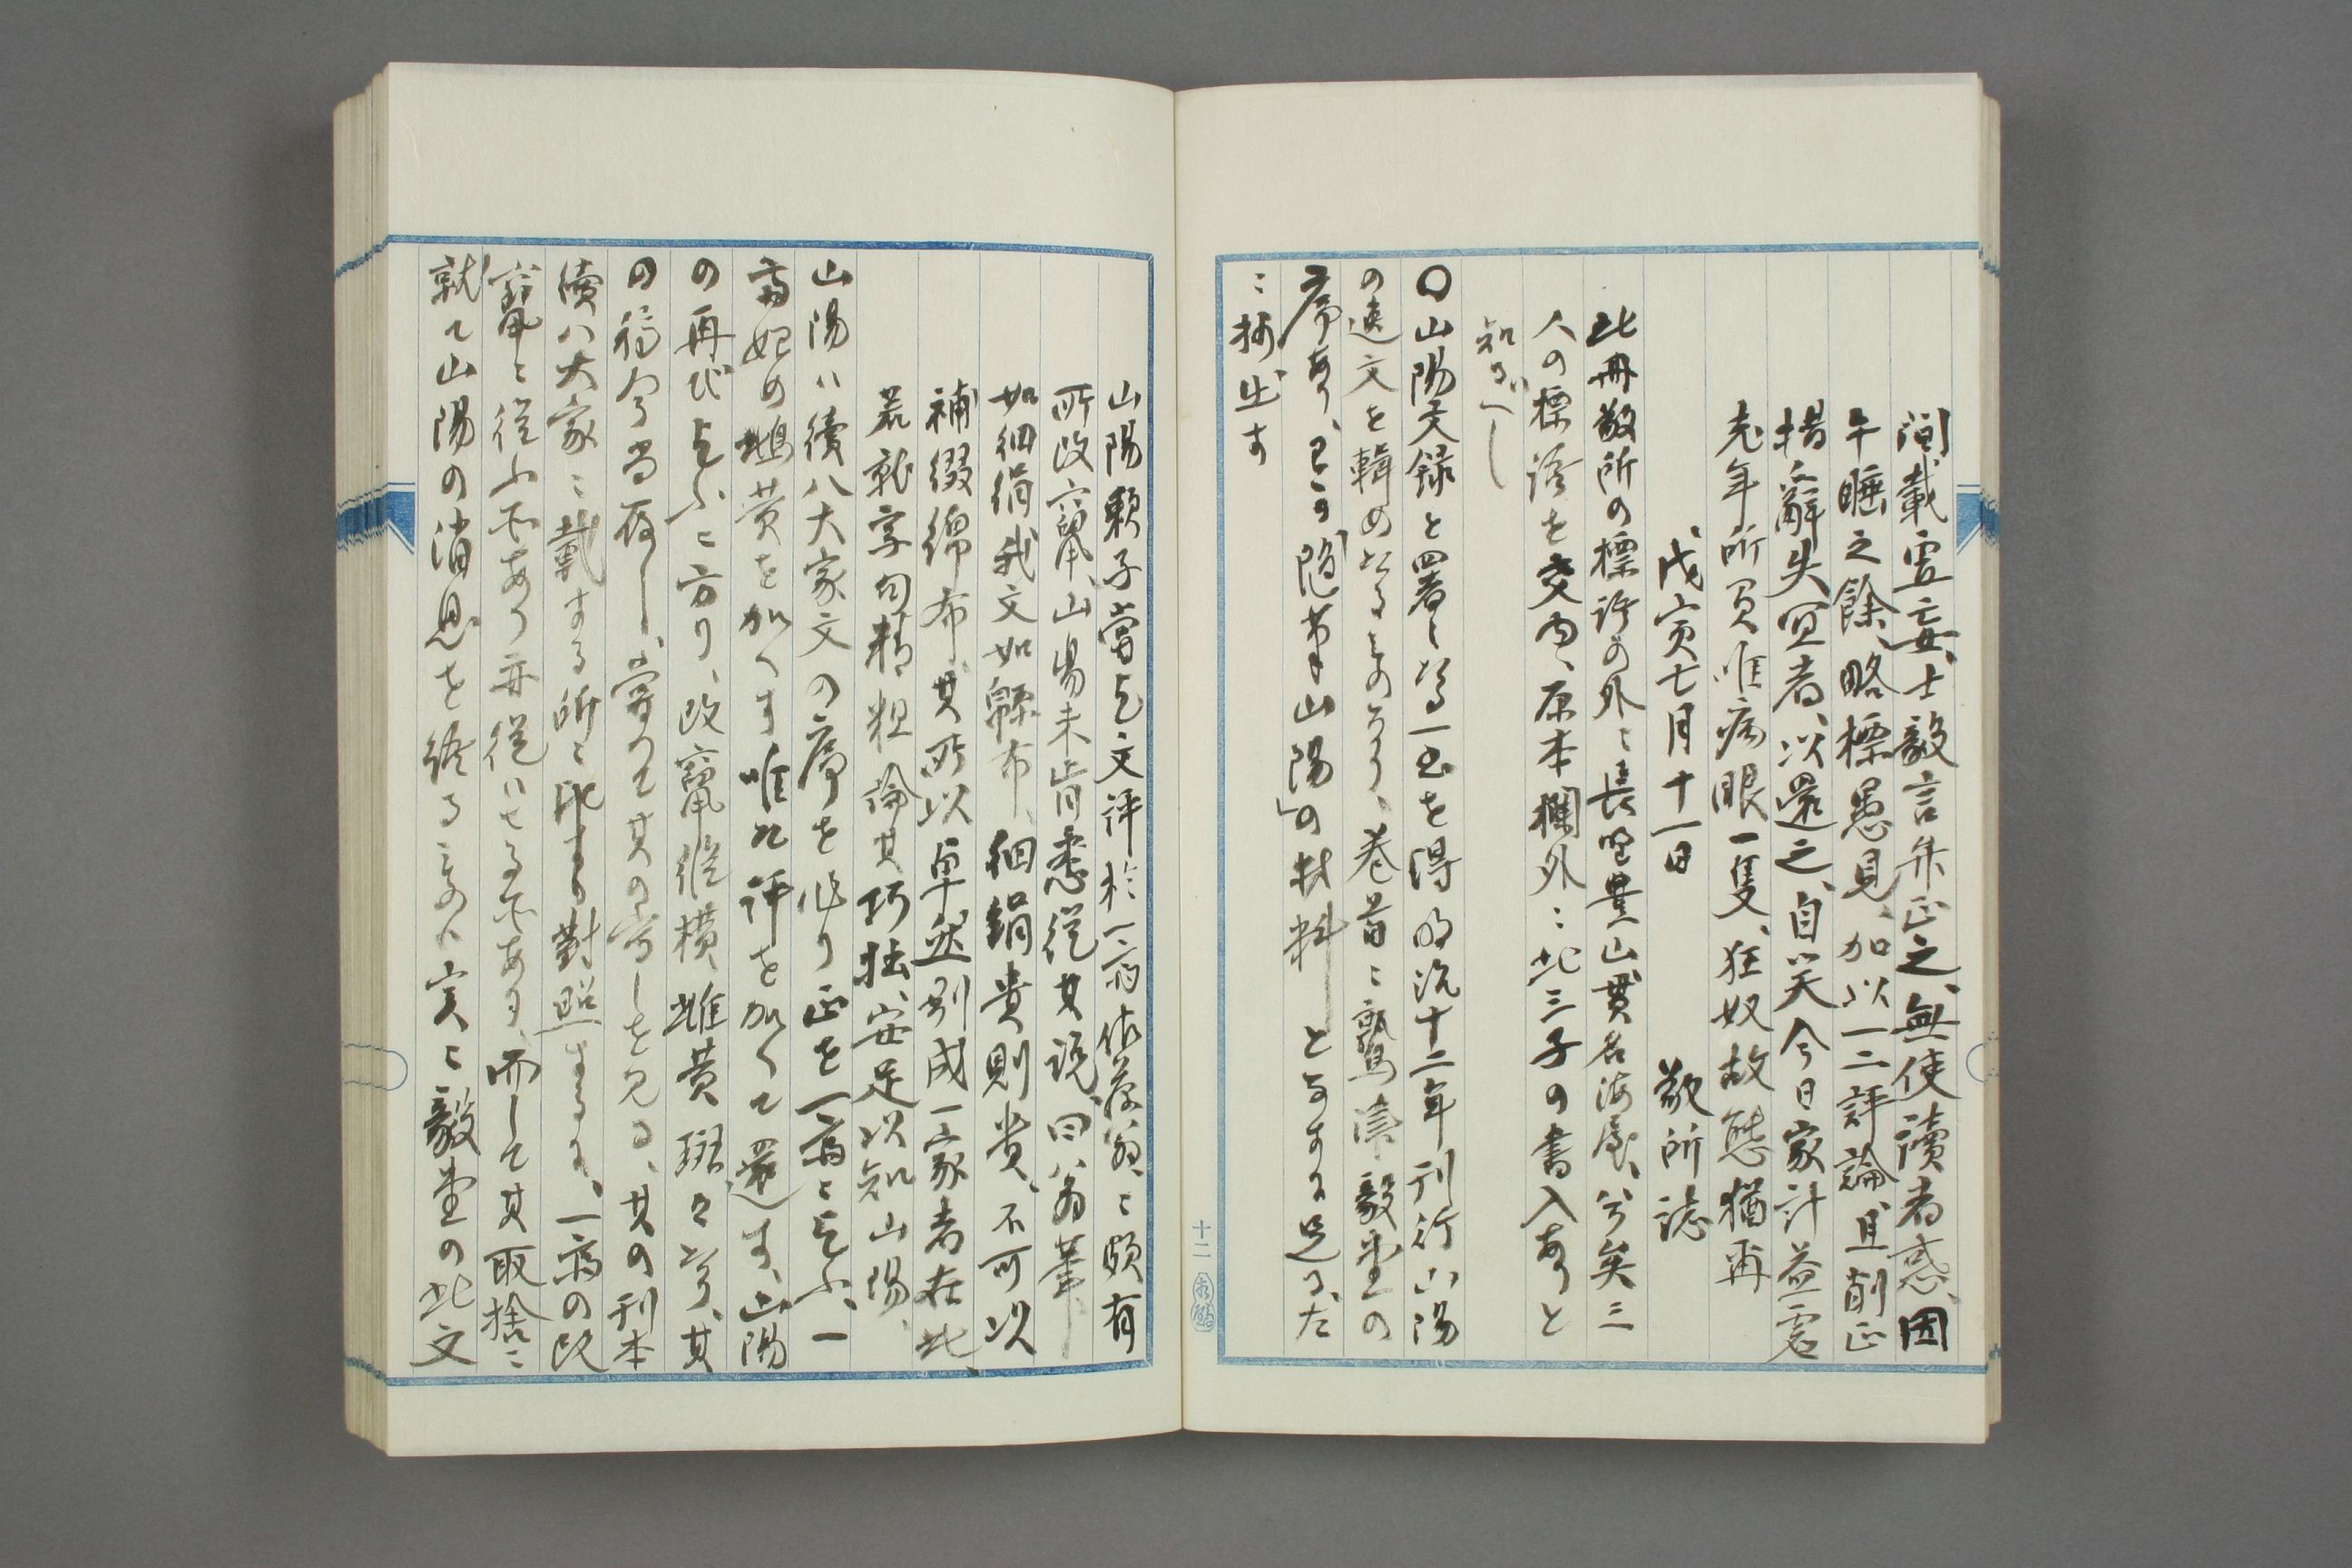 間載虚妄、士毅言弁正之、無使読者惑、因
午睡之餘、略標愚見、加以一二評論、且削正
措辭失宜者、以還之、自笑今日家計益窘
先年所買唯病眼一隻、狂奴故態猶再
戊寅七月十一日　敬所誌
此冊敬所の標許の外ニ長野豊山貫名海屋、兮矣三
人の標語を交内、原本欄外ニ此三子の書入ありと
知るべし
〇山陽天録と署しある一書を得明治十二年刊行山陽
の遺文を輯めたるものなり、巻首ニ鷲津毅堂の
序あり、予の「随筆山陽」の材料となするに足る、左
ニ抄出す
山陽頼子嘗乞文評於一斎佐藤翁ニ頗有
所改竄、山陽未肯悉従其説、曰、翁筆
如細絹我文如縣布、細絹貴則貴、不可以
補綴綿布、其所以卓然別成一家者在此、
若就字句精粗論其巧拙、安足以知山陽、
山陽ハ續八大家文の序を作り正を一斎ニ乞ふ、一
斎妃の雌黄を加へず唯だ評を加へて還す、山陽
の再び乞ふニ方り、改竄縦横雌黄斑々たり、其
の稿今尚存し、嘗つて其の寫しを見る、其の刊本
續八大家ニ載する所と対照するに、一斎の改
竄ニ從ふ所あり亦従はざる所あり、而して其取捨ニ
就て山陽の消息を繹るもの、実ニ毅堂の此文
十二